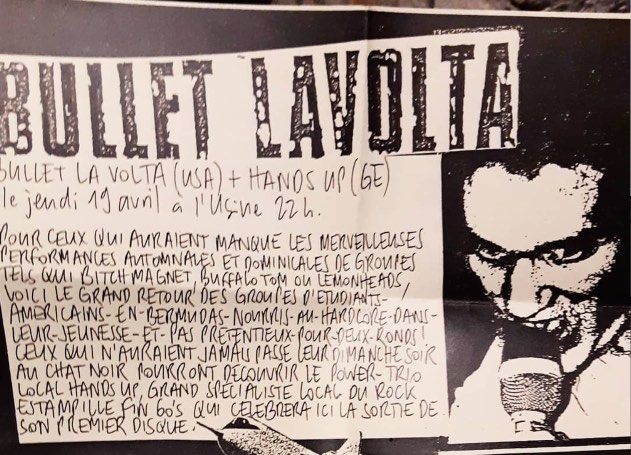 BULLET LAVOLTA
BULLET LA VOLTA (USA) + HANDS UP (GE)
le jeudi 19 avril à l'Usine 22h.
POUR CEUX QUI AURAIENT MANQUE LES MERVEILLEUSES
PERFORMANCES AUTOMNALES ET DOMINICALES DE GROUPES
TELS QUI BITCH MAGNET, BUFFALO TOM OU LEMONHEADS,
VOICI LE GRAND RETOUR DES GROUPES D'ETUDIANTS-
AMERICAINS-EN-BERMUDAS-NOURRIS-AU-HARDCORE-DANS-
LEUR-JEUNESSE-ET-PAS PRETENTIEUX-POUR-DEUX-RONDS!
CEUX QUI N'AURAIENT JAMAIS PASSE LEUR DIMANCHE SOIR
AU CHAT NOIR POURRONT DECOUVRIR LE POWER-TRIO
LOCAL HANDS UP, GRAND SPECIALISTE LOCAL DU ROCK
ESTAMPILLE FIN 60'S QUI CELEBRERA ICI LA SORTIE DE
SON PREMIER DISQUE.